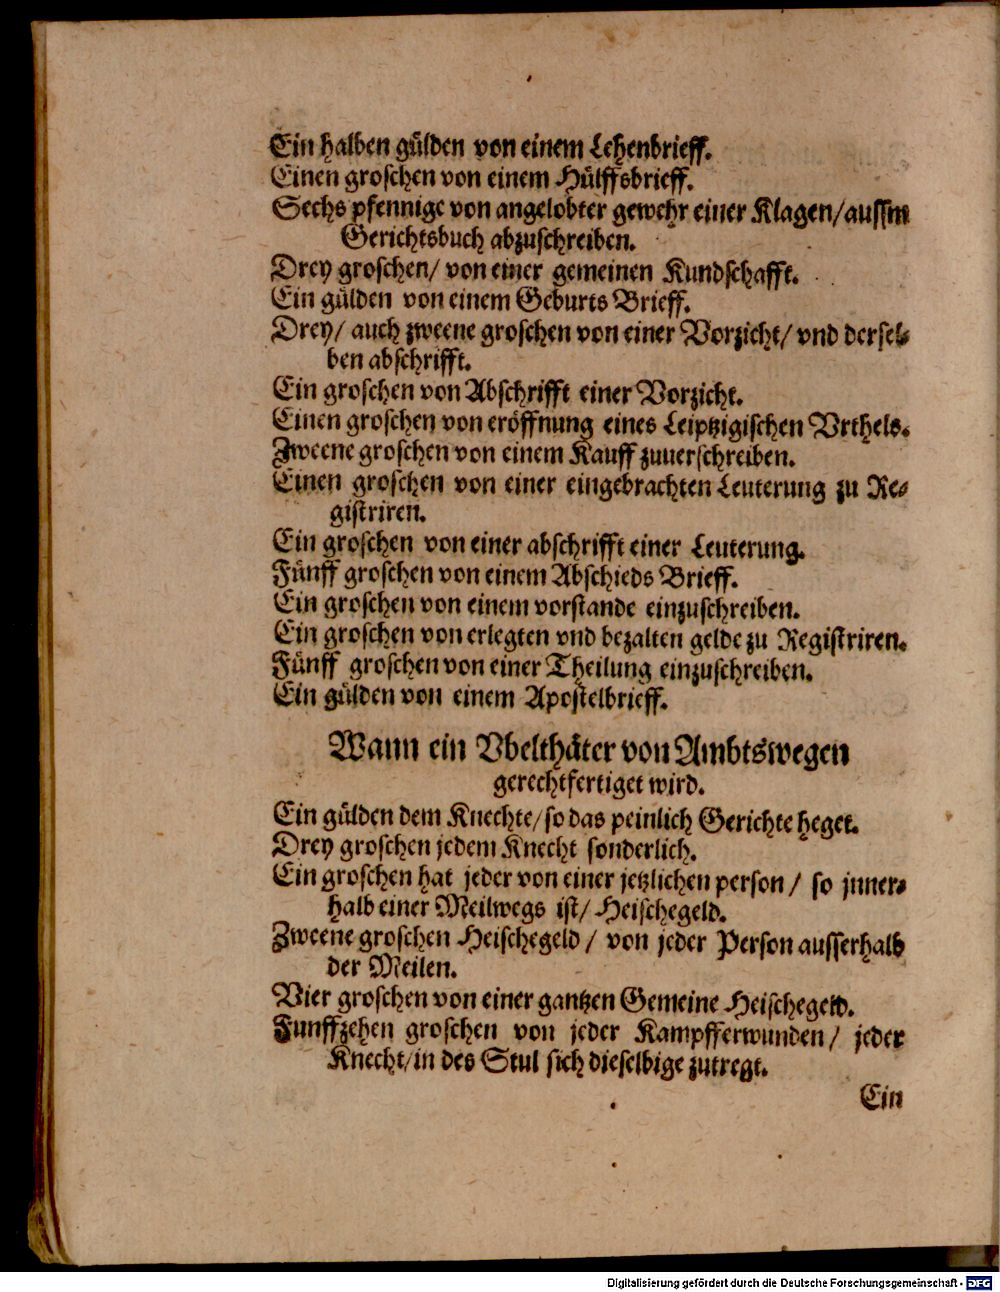 Ein halben gülden von einem Lehenbrieff.
Einen groschen von einem Hülffsbrieff.
Sechs pfennige von angelobter gewehr einer Klagen/aussm
Gerichtsbuch abzuschreiben.
Drey groschen/ von einer gemeinen Kundschafft.
Ein gülden von einem Geburts Brieff.
Drey/ auch zweene groschen von einer Vorzicht/ vnd dersel-
ben abschrifft.
Ein groschen von Abschrifft einer Vorzicht.
Einen groschen von eröffnung eines Leiptzigischen Vrthels.
Zweene groschen von einem Kauff zuuerschreiben.
Einen groschen von einer eingebrachten Leuterung zu Re-
gistriren.
Ein groschen von einer abschrifft einer Leuterung.
Fünff groschen von einem Abschieds Brieff.
Ein groschen von einem vorstande einzuschreiben.
Ein groschen von erlegten vnd bezalten gelde zu Registriren.
Fünff groschen von einer Theilung einzuschreiben.
Ein gülden von einem Apostelbrieff.
Wann ein Vbelthäter von Ambtswegen
gerechtfertiget wird.
Ein gülden dem Knechte/so das peinlich Gerichte heget.
Drey groschen jedem Knecht sonderlich.
Ein groschen hat jeder von einer jetzlichen person/ so jnner-
halb einer Meilwegs ist/ Heischegeld.
Zweene groschen Heischegeld/ von jeder Person ausserhalb
der Meilen.
Vier groschen von einer gantzen Gemeine Heischegeld.
Funffzehen groschen von jeder Kampfferwunden/ jeder
Knecht/in des Stul sich dieselbige zutregt.
Ein
Digitalisierung gefördert durch die Deutsche Forschungsgemeinschaft - DFG